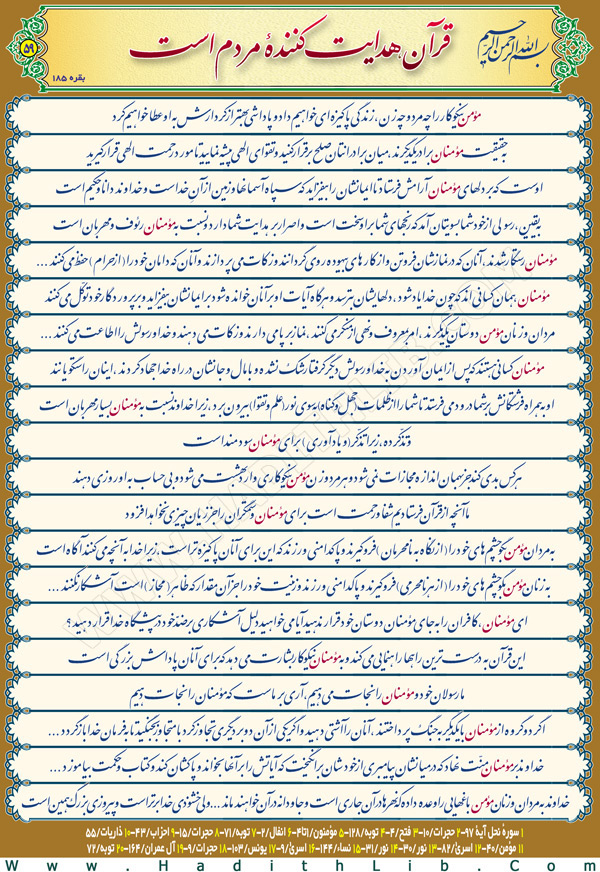 بسم الله الرحمن الرحیم
قرآن، هدایت کنندهٔ مردم است
۵۹
بقره ۱۸۵
مؤمن نیکوکار را چه مرد و چه زن، زندگی پاکیزه ای خواهیم داد و پاداشی بهتر از کردارش به او عطا خواهیم کرد
به حقیقت مؤمنان برادر یکدیگرند، میان برادرانتان صلح برقرار کنید و تقوای الهی پیشه نمایید تا مورد رحمت الهی قرار گیرید
اوست که بر دلهای مؤمنان آرامش فرستاد تا ایمانشان را بیفزاید که سپاه آسمانها و زمین از آن خداست و خداوند دانا و حکیم است
بیقین، رسولی از خود شما بسویتان آمد که رنجهای شما بر او سخت است و اصرار بر هدایت شما دارد و نسبت به مؤمنان رئوف و مهربان است
مؤمنان رستگار شدند، آنان که در نمازشان فروتن و از کارهای بیهوده روی گردانند و زکات می پردازند و آنان که دامان خود را (از حرام) حفظ می کنند ...
مؤمنان، همان کسانی اند که چون خدا یاد شود، دلهایشان بترسد و هرگاه آیات او بر آنان خوانده شود بر ایمانشان بیفزاید و بر پروردگار خود توکّل می کنند
مردان و زنان مؤمن دوستان یکدیگرند، امر بمعروف و نهی از منکر می کنند، نماز بر پا می دارند و زکات می دهند و خدا و رسولش را اطاعت می کنند...
مؤمنان کسانی هستند که پس از ایمان آوردن به خدا و رسولش دیگر گرفتار شک نشده و با مال و جانشان در راه خدا جهاد کردند، اینان راستگویانند
او به همراه فرشتگانش بر شما درود می فرستد تا شما را از ظلمات (جهل و گناه) بسوی نور (علم و تقوا) بیرون برد، زیرا خداوند نسبت به مؤمنان بسیار مهربان است
و تذکّر ده، زیرا تذکّر (و یادآوری) برای مؤمنان سودمند است
هر کس بدی کند جز بهمان اندازه مجازات نمی شود و هر مرد و زن مؤمن نیکوکاری وارد بهشت می شود و بی حساب به او روزی دهند
ما آنچه از قرآن فرستادیم شفا و رحمت است برای مؤمنان و ستمگران را جز زیان چیزی نخواهد افزود
به مردان مؤمن بگو چشم های خود را (از نگاه به نامحرمان) فرو گیرند و پاکدامنی ورزند که این برای آنان پاکیزه تر است، زیرا خدا به آنچه می کنند آگاه است
به زنان مؤمن بگو چشم های خود را (از هر نامحرمی) فرو گیرند و پاکدامنی ورزند و زینت خود را جز آن مقدار که ظاهر (مجاز) است آشکار نکنند...
ای مؤمنان، کافران را به جای مؤمنان دوستان خود قرار ندهید، آیا می خواهید دلیل آشکاری بر ضدّ خود در پیشگاه خدا قرار دهید؟
این قرآن به درست ترین راهها راهنمایی می کند و به مؤمنان نیکوکار بشارت می دهد که برای آنان پاداش بزرگی است
ما رسولان خود و مؤمنان را نجات می دهیم، آری بر ماست که مؤمنان را نجات دهیم
اگر دو گروه از مؤمنان با یکدیگر به جنگ پرداختند، آنان را آشتی دهید و اگر یکی از آن دو بر دیگری تجاوز کرد با متجاوز بجنگید تا به فرمان خدا باز گردد...
خداوند بر مؤمنان منّت نهاد که در میانشان پیامبری از خودشان برانگیخت که آیاتش را بر آنها بخواند و پاکشان کند و کتاب و حکمت بیاموزد...
خداوند به مردان و زنان مؤمن باغهایی را وعده داده که نهرها در آن جاری است و جاودانه در آن خواهند ماند...ولی خشنودی خدا برتر است و پیروزی بزرگ همین است
۱ سورهٔ نحل آیهٔ ۹۷-۲ حجرات/۱۰-۳ فتح/۴-۴ توبه/۱۲۸-۵ مؤمنون/۱تا۴-۶ انفال/۲-۷ توبه/۷۱-۸ حجرات/۱۵-۹ احزاب/۴۳-۱۰ ذاریات/۵۵
۱۱ مؤمن/۴۰-۱۲ اسریٰ/۸۲-۱۳ نور/۳۰-۱۴ نور/۳۱-۱۵ نساء/۱۴۴-۱۶ اسریٰ/۹-۱۷ یونس/۱۰۳-۱۸ حجرات/۹-۱۹ آل عمران/۱۶۴-۲۰ توبه/۷۲
www.HadithLib.Com